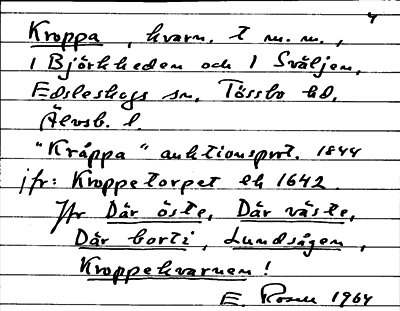 4
Kroppa, kvarn. t m.m.,
1 Björkheden och 1 Sväljen,
Edsleskogs sn. Tössbo hd.
Älvsb. l.
"Kråppa" auktionsprot. 1844
jfr: Kroppetorpet ek 1642.
Jfr Där öste, Där väste,
Där borti, Lundsågen,
Kroppekvarnen!
E. Rosén 1964